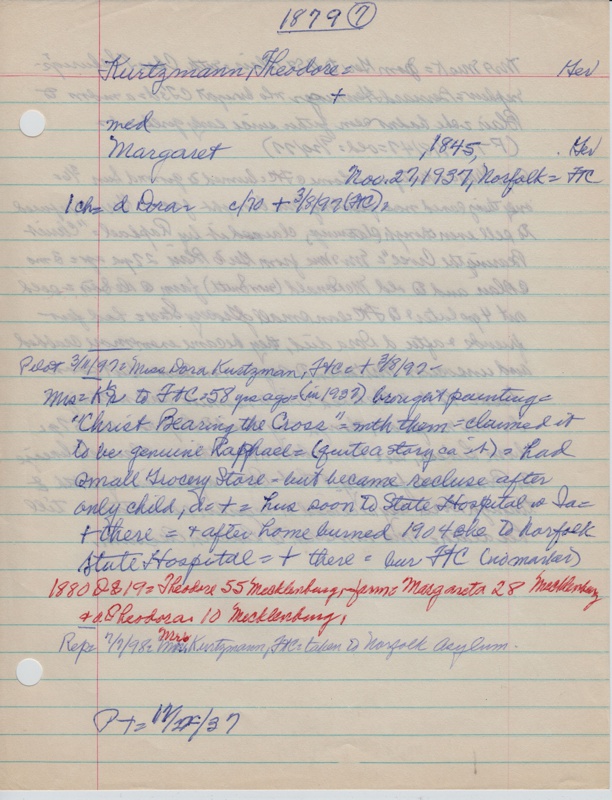 1879 (7)
Kurtzmann, Theodore = Ger
+
med
Margaret ,1845, . Ger
Nov. 27, 1937, Norfolk = FtC
1 ch = d Dora = c/70 + 3/8/97 (FtC) =
Pilot 3/11/97 = Miss Dora Kurtzman, FtC = + 3/8/97 -
Mrs = K to FtC = 58 yrs ago = (in 1937) brought painting =
"Christ Bearing the Cross" = with them = claimed it
to be genuine Rapphael = (quite a story ca it) = had
small Grocery Store - but became recluse after
only child, d = + = hus soon to State Hospital in Ia =
+ there = + after home burned 1904 she to Norfolk
State Hospital = + there = bur FtC (no marker)
1880 D 8 19 = Theodore 55 Mecklenburg, farm = Margareta 28 Mecklenburg
+ d. Theodora 10 Mecklenburg.
Rep = 7/7/98 = Mrs. Kurtzmann, FtC = taken to Norfolk Asylum.
P + = /37